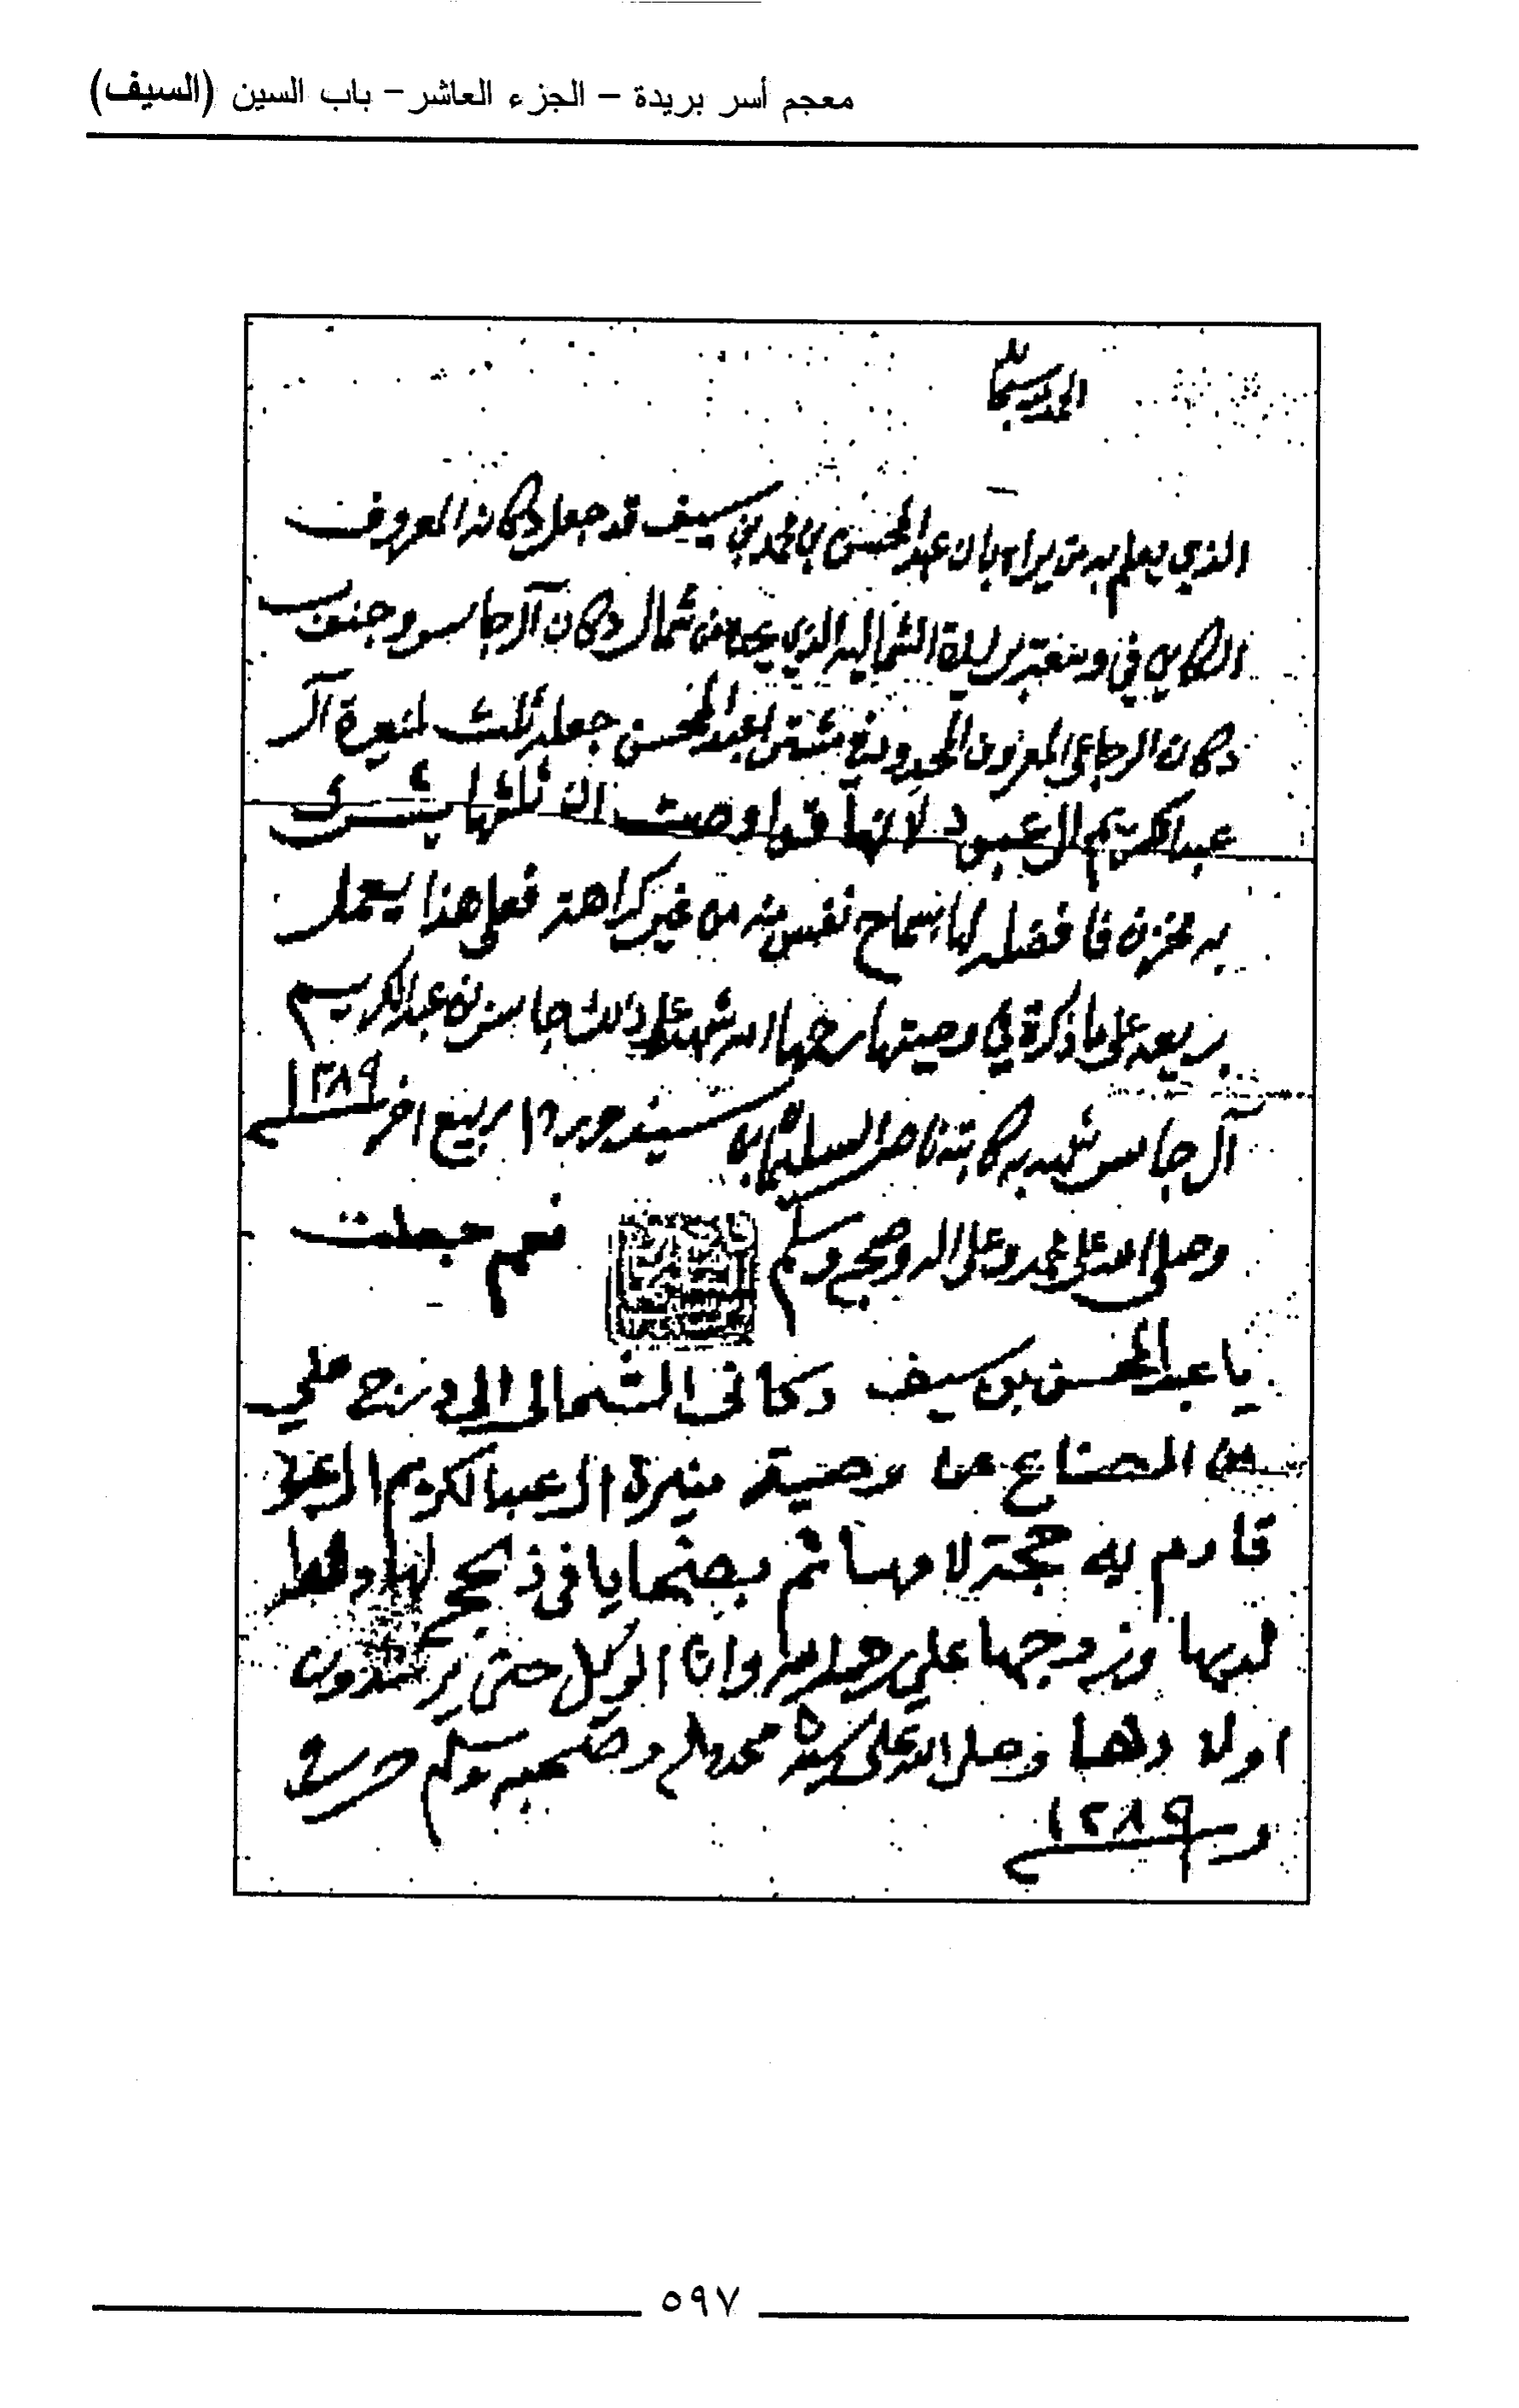 معجم أسر بريدة – الجزء العاشر – باب السين (السيف)
الحمد لله سبحانه
الذي يعلم به من يراه بان عبدالمحسن بن محمد بن سيف قد جعل دكانه المعروف
الكاين في الشماليه الذي يحده من شمال دكان آل جاسر وجنوب
دكان الرجاعى المعروف المحدود عبدالمحسن جعله ثلث لمنيرة آل
عبدالكريم ال عبود لانها قد اوصت ان ثلثها يشترى
به فافضله لها بسماح نفس منه من غير كراهة فعلى هذا يعمل
بريعه على ما ذكرة في وصيتها رحمها الله شهد على ذالك جاسر بن عبدالكريم
آل جاسر شهد به كاتبه ناصر السليمان بن سيف ربيع اخر ١٢٨٩
وصلى الله على محمد وعلى اله وصحبه وسلم
نعم جعلت
يا عبدالمحسن بن سيف دكانى الشمالى الي علي
من الصناع عن وصية منيرة ال عبدالكريم ال عبود
قادم به حجة لامها ثم بضحايا في ذ الحج لها
لديها وزوجها علي وانا الوكيل حتى يرشدون
اولادها وصلى الله على محمد واله وصحبه وسلم
١٢٨٩
٥٩٧